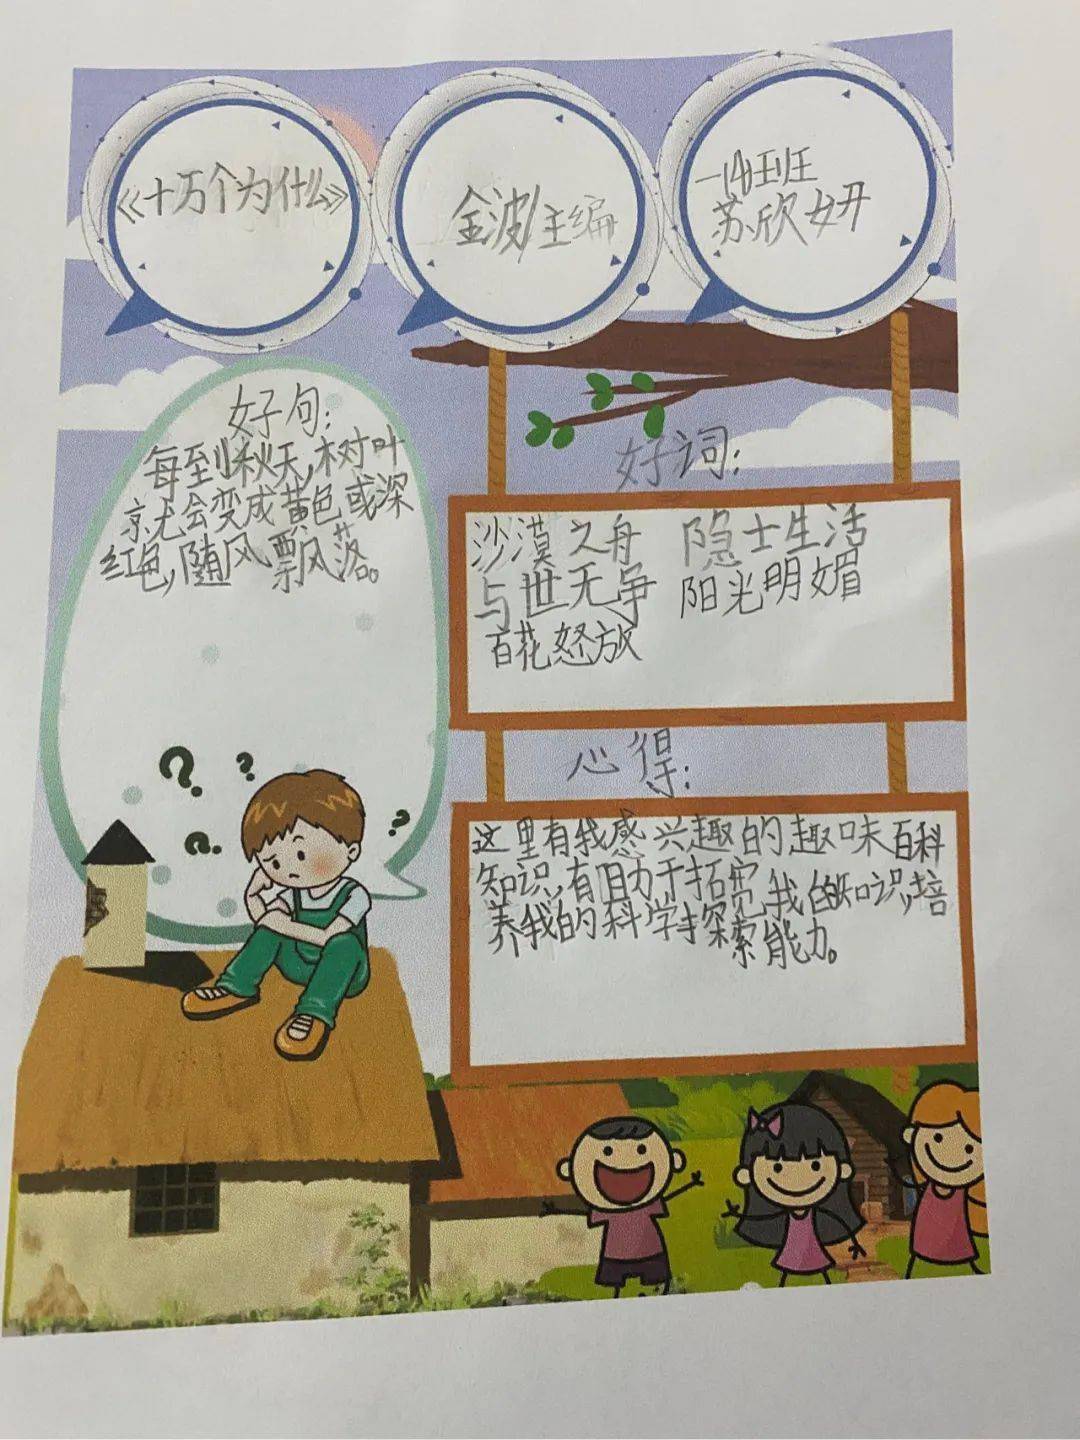 《十万个为什么》
金波/主编
一(4)班
苏欣妍
好句：
每到秋天，树叶
京尤会变成黄色或深
红色，随风飘落。
好词：
沙漠之舟 隐士生活
与世无争 阳光明媚
百花怒放
心得：
这里有我感兴趣的趣味百科
知识，有助于拓宽我的知识，培
养我的科学探索能力。
? ? ? ?